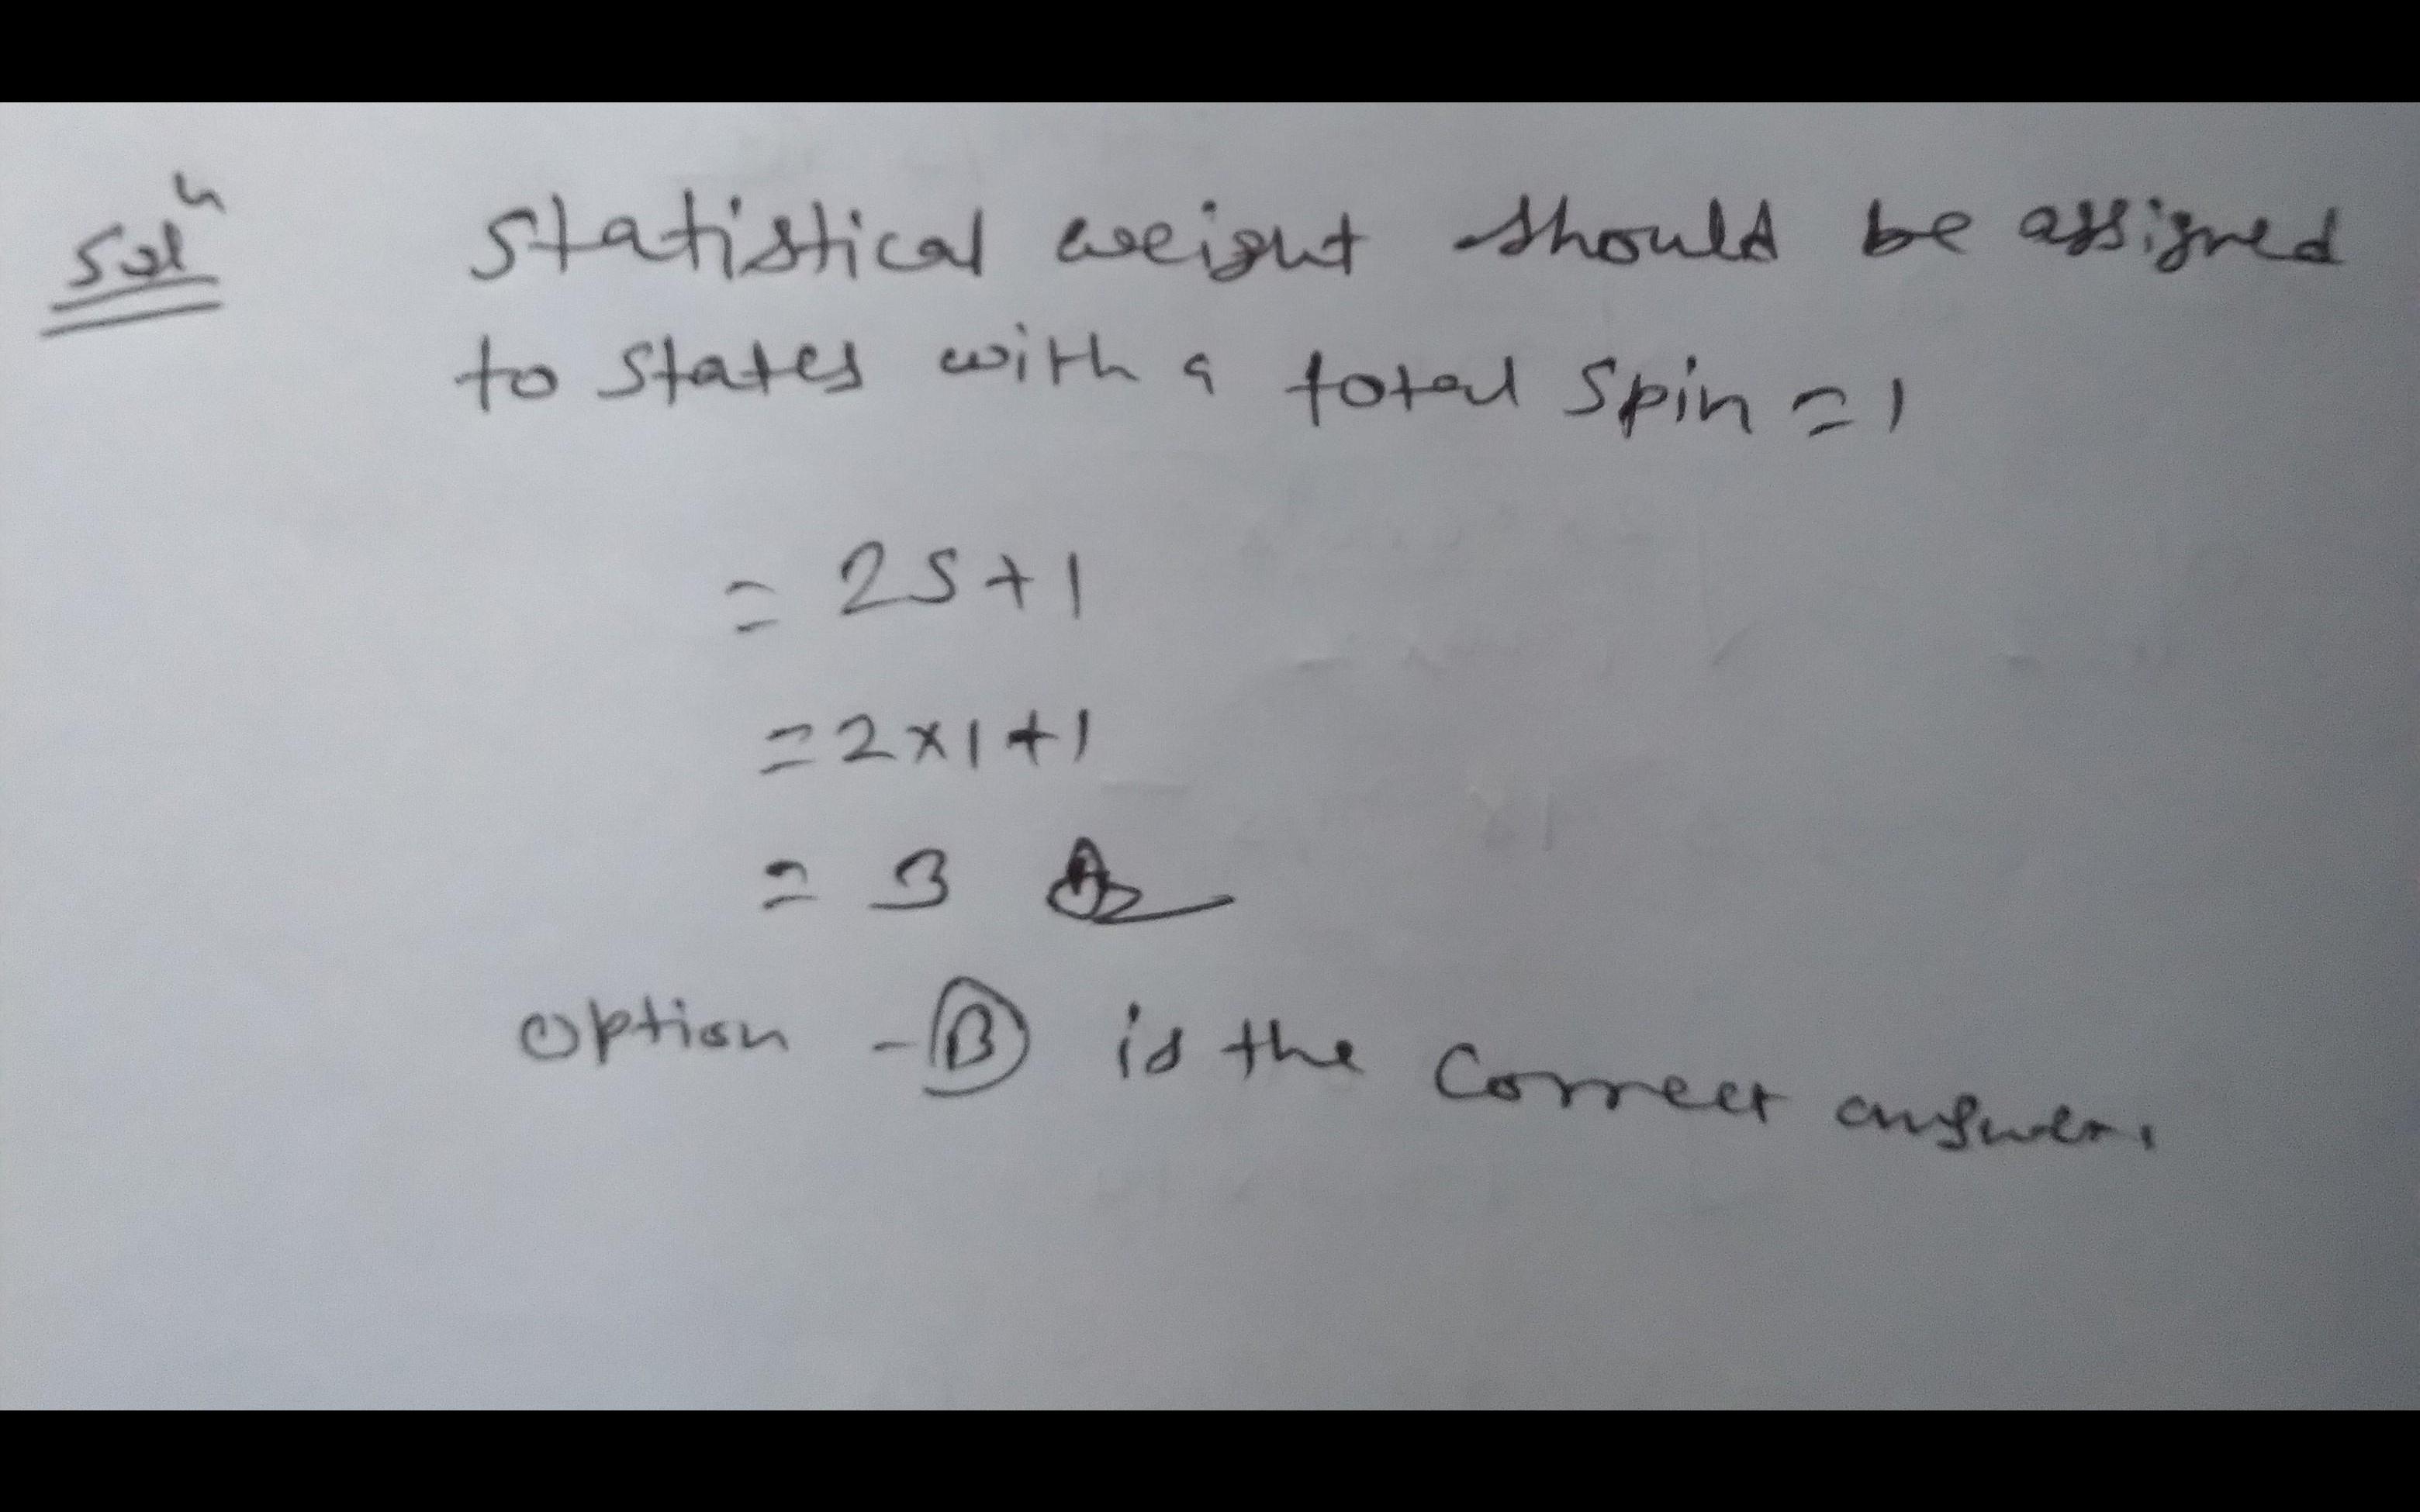 Solⁿ Statistical weight should be assigned
to states with a total spin = 1
= 2S+1
= 2×1+1
= 3
option - B is the correct answer.